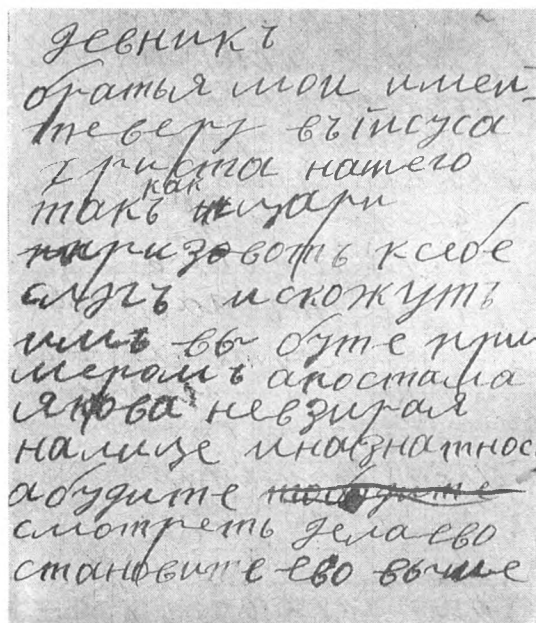 девникъ
братья мои имей-
те веру въ Iисуса
христа нашего
какъ
такъ цари
призовотъ к себе
слугъ и скожутъ
имъ вы буте при
меромъ апостама
якова невзирая
налице иназнатнос
абудите
смотреть делаево
становите ево выше